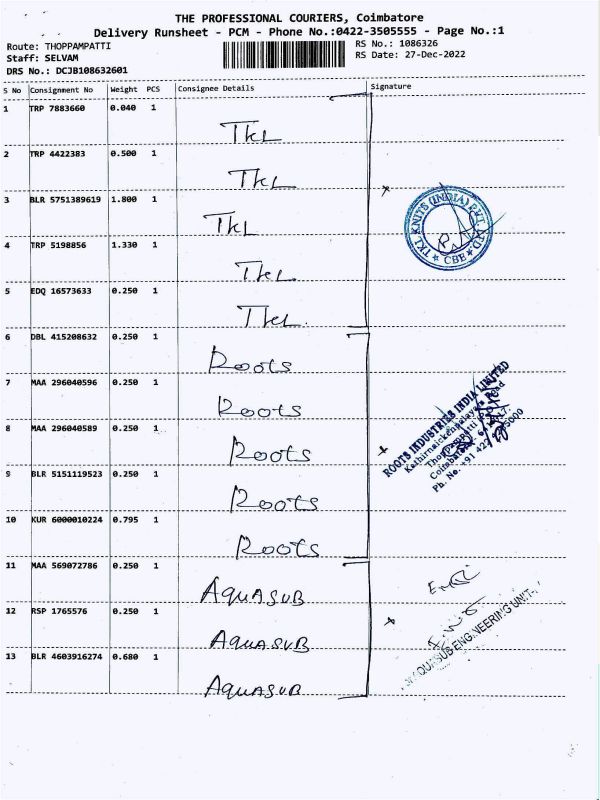 THE PROFESSIONAL COURIERS, Coimbatore
Delivery Runsheet - PCM - Phone No.:0422-3505555 - Page No.:1
Route: THOPPAMPATTI
Staff: SELVAM
DRS No.: DCJB108632601
RS No.: 1086326
RS Date: 27-Dec-2022
S No Consignment No Weight PCS Consignee Details Signature
1 TRP 7883660 0.040 1 TKL
2 TRP 4422383 0.500 1 TKL
3 BLR 5751389619 1.800 1 TKL
4 TRP 5198856 1.330 1 TKL
5 EDQ 16573633 0.250 1 TKL
TKL KNITS (INDIA) PVT LTD
★ CBE ★
6 DBL 415208632 0.250 1 Roots
7 MAA 296040596 0.250 1 Roots
8 MAA 296040589 0.250 1 Roots
9 BLR 5151119523 0.250 1 Roots
10 KUR 6000010224 0.795 1 Roots
ROOTS INDUSTRIES INDIA LIMITED
Kathirnaickenpalayam Road
Thoppampatti
Coimbatore
Ph. No. +91 422
11 MAA 569072786 0.250 1 AQUASUB
12 RSP 1765576 0.250 1 AQUASUB
13 BLR 4603916274 0.680 1 AQUASUB
AQUASUB ENGINEERING UNIT-